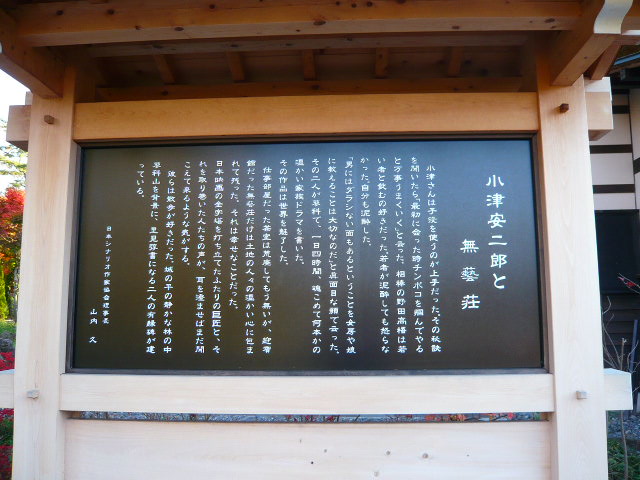 小津安二郎と
無藝荘
小津さんは子役を使うのが上手だった。その秘訣
を聞いたら、最初に会った時チンポコを掴んでやる
と万事うまくいく、と云った。相棒の野田高梧は若
い者と飲むのが好きだった。若者が泥酔しても怒らな
かった。自分も泥酔した。
「男にはダラシない面もあるということを女房や娘
に教えることは大切なのだ」と真面目な顔で云った。
その二人が蓼科で、一日四時間、魂こめて何本かの
温かい家族ドラマを書いた。
その作品は世界を魅了した。
仕事部屋だった
もう無いが、迎賓
館だった無藝荘だけは土地の人々の温かい心に包ま
れて残った。それは幸せなことだった。
日本映画の金字塔を打ち立てたふたりの巨匠と、そ
れを取り巻いた人たちの声が、耳を澄ませばまだ聞
こえて来るような気がする。
彼らは散歩が好きだった。城の平の静かな林の中
蓼科山を背景に、里見弴書になる二人の有縁碑が建
っている。
日本シナリオ作家協会理事長
山内 久